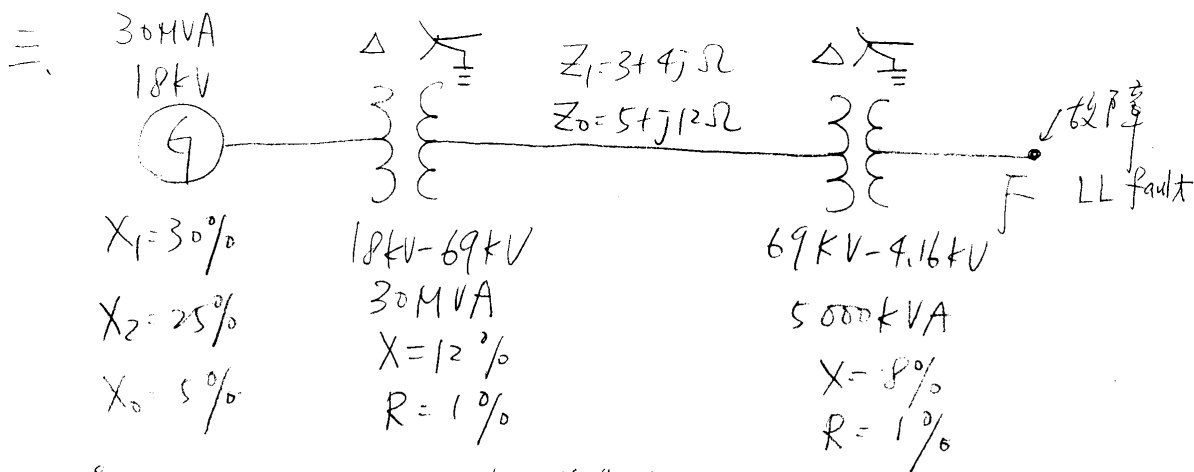 三、
30MVA
18kV
G
X₁=30%
X₂=25%
X₀=5%
Δ
18kV-69kV
30MVA
X=12%
R=1%
Z₁=3+4jΩ
Z₀=5+j12Ω
Δ
69kV-4.16kV
5000kVA
X=8%
R=1%
故障
F LL fault